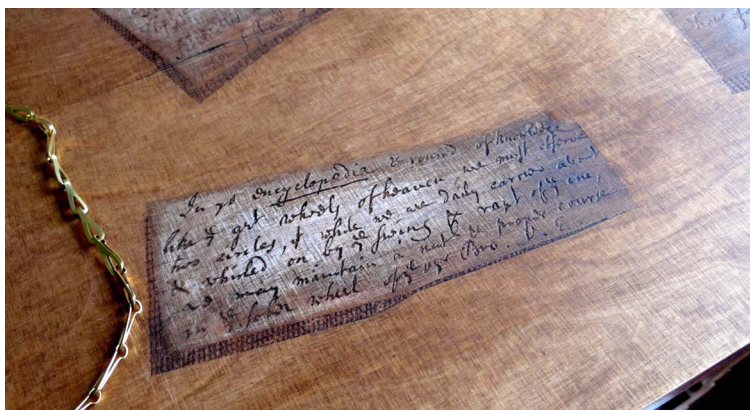 In ys encyclopædia & round of knowledge
like ye grt wheels of heaven we must observe
two circles, yt while we are daily carried about
& whirled on by ye swing & rapt of ye one,
we may maintain a nat & proper course
in ye sober wheel of ye oyr Bro. P. E.